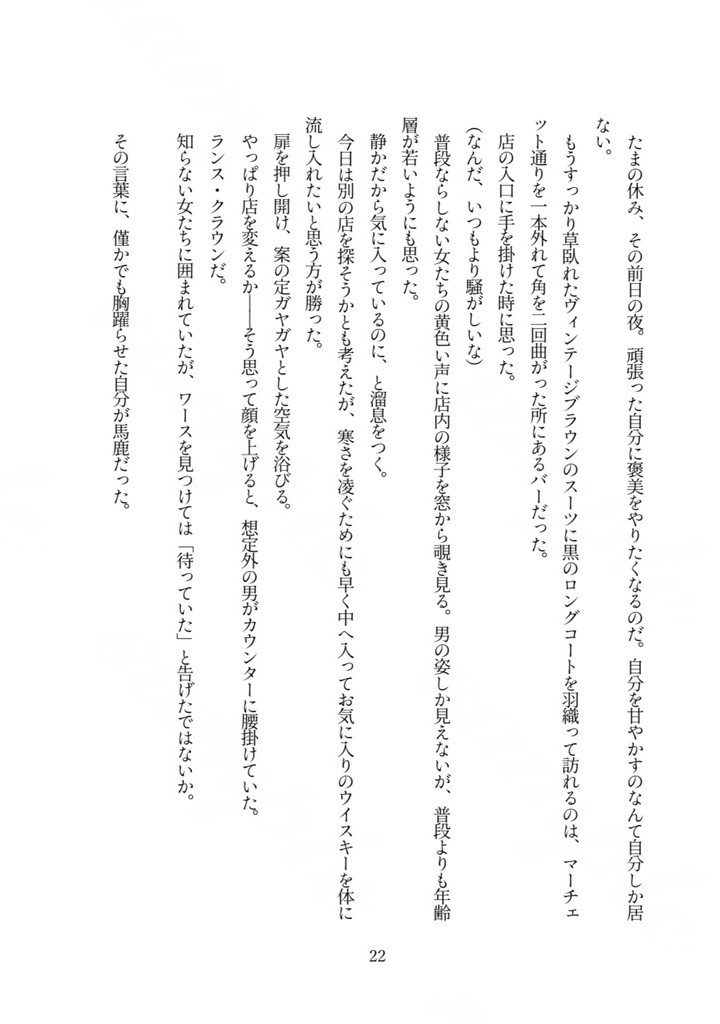 たまの休み、その前日の夜。頑張った自分に褒美をやりたくなるのだ。自分を甘やかすのなんて自分しか居
ない。
もうすっかり草臥れたヴィンテージブラウンのスーツに黒のロングコートを羽織って訪れるのは、マーチェ
ット通りを一本外れて角を二回曲がった所にあるバーだった。
店の入口に手を掛けた時に思った。
(なんだ、いつもより騒がしいな)
普段ならしない女たちの黄色い声に店内の様子を窓から覗き見る。男の姿しか見えないが、普段よりも年齢
層が若いようにも思った。
静かだから気に入っているのに、と溜息をつく。
今日は別の店を探そうかとも考えたが、寒さを凌ぐためにも早く中へ入ってお気に入りのウイスキーを体に
流し入れたいと思う方が勝った。
扉を押し開け、案の定ガヤガヤとした空気を浴びる。
やっぱり店を変えるか――そう思って顔を上げると、想定外の男がカウンターに腰掛けていた。
ランス・クラウンだ。
知らない女たちに囲まれていたが、ワースを見つけては「待っていた」と告げたではないか。
その言葉に、僅かでも胸躍らせた自分が馬鹿だった。
22